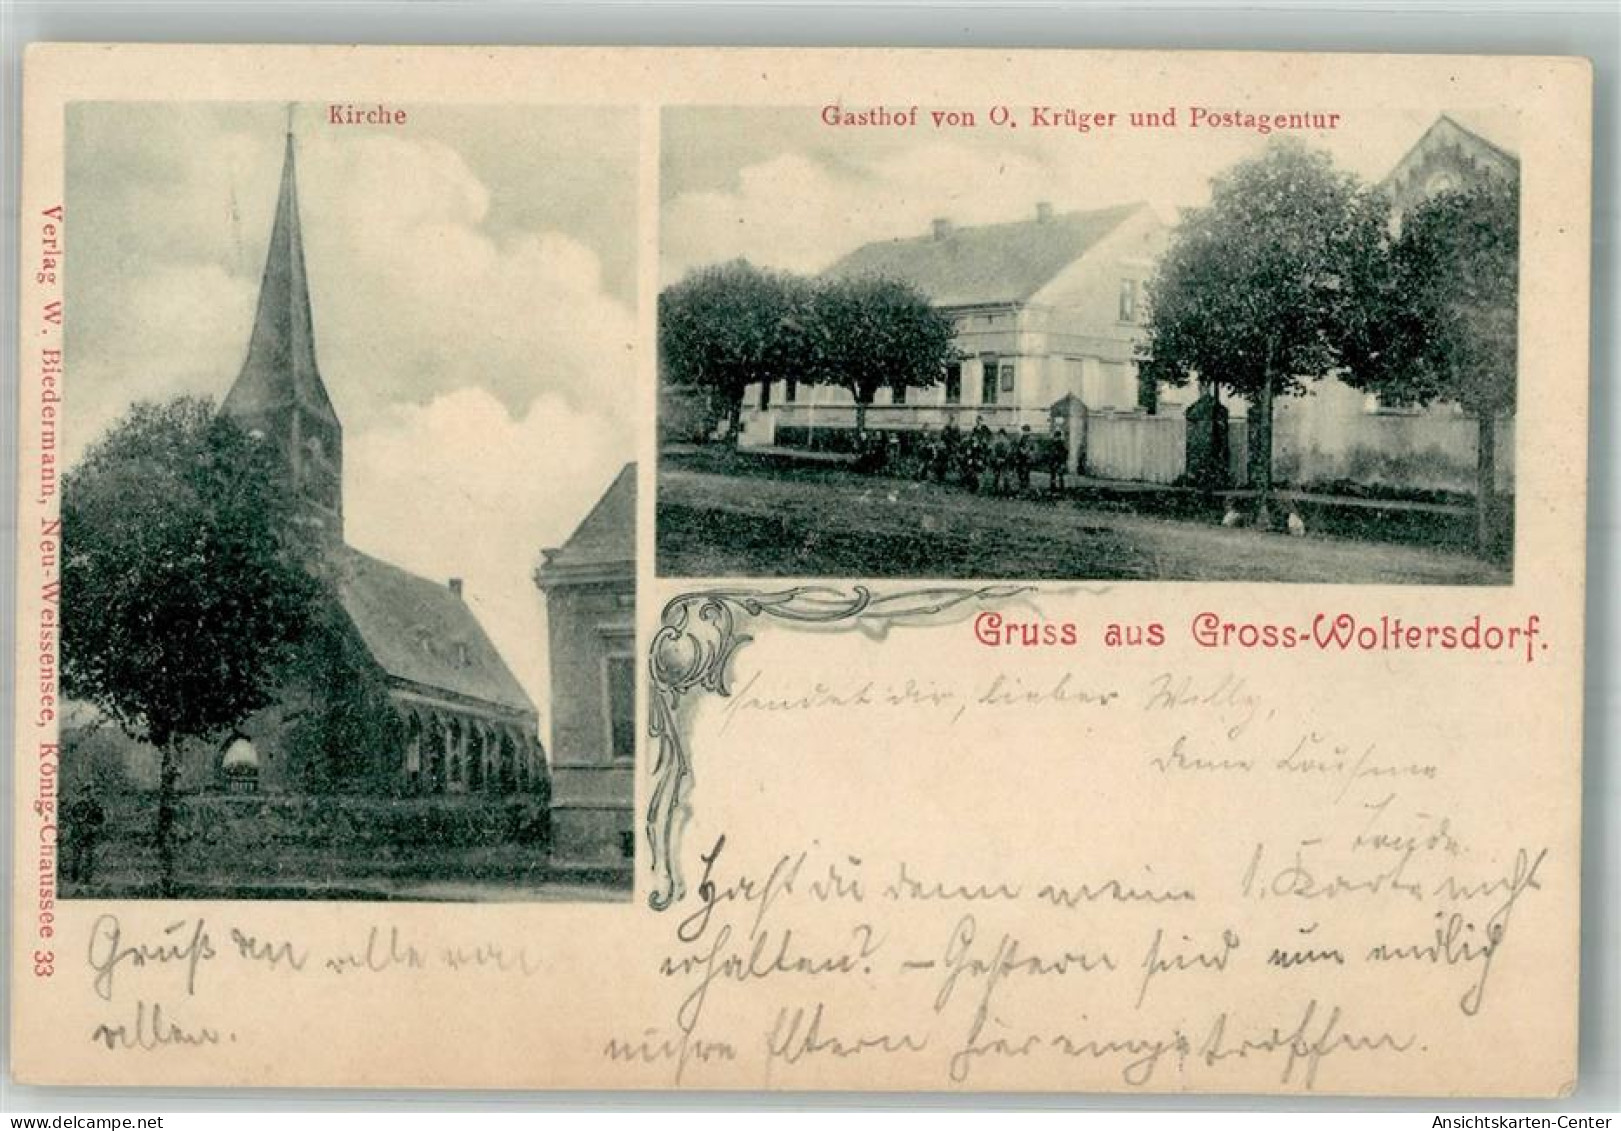 Kirche
Gasthof von O. Krüger und Postagentur
Verlag W. Biedermann, Neu-Weissensee, König-Chaussee 33
Gruss aus Gross-Woltersdorf.
sendet dir, lieber Willy,
deine Cousine
Trude.
Hast du denn meine 1. Karte nicht
erhalten? – Gestern sind nun endlich
unsre Eltern hier eingetroffen.
Gruß an alle von
allen.
Ansichtskarten-Center